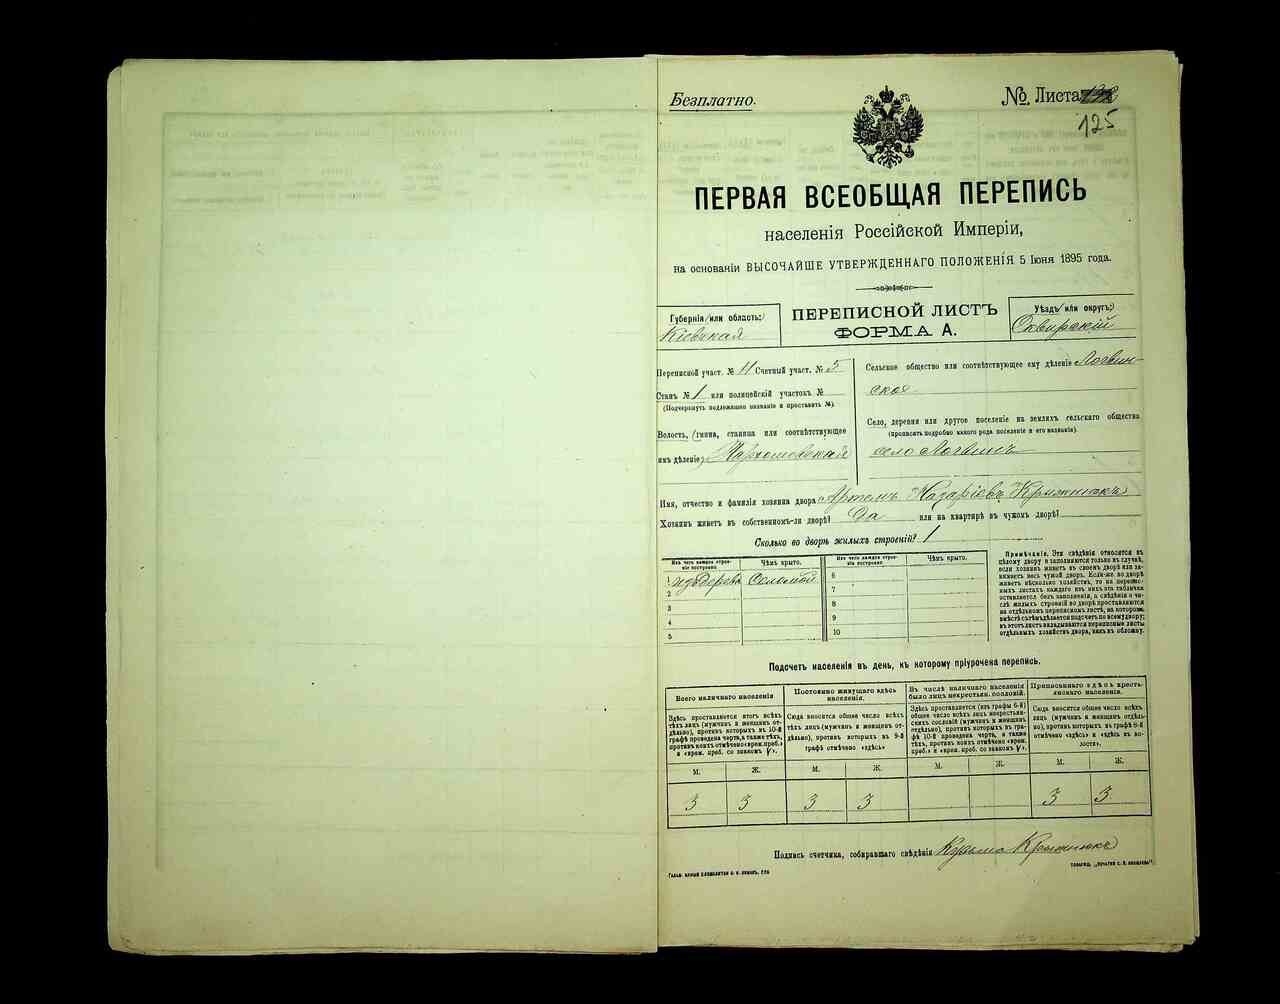 Безплатно.
№ Листа
125
ПЕРВАЯ ВСЕОБЩАЯ ПЕРЕПИСЬ
населенія Россійской Имперіи,
на основаніи ВЫСОЧАЙШЕ УТВЕРЖДЕННАГО ПОЛОЖЕНІЯ 5 Іюня 1895 года.
Губернія (или область:)
Кіевская
ПЕРЕПИСНОЙ ЛИСТЪ
ФОРМА А.
Уѣздъ (или округъ:)
Сквирскій
Переписной участ. № 11 Счетный участ. № 5
Станъ № 1 или полицейскій участокъ №
(Подчеркнуть подлежащее названіе и проставить №).
Волость, (гмина, станица или соотвѣтствующее
имъ дѣленіе)
Сельское общество или соотвѣтствующее ему дѣленіе Логвин-
ское
Село, деревня или другое поселеніе на земляхъ сельскаго общества
(прописать подробно какого рода поселеніе и его названіе).
село Логвинъ
Имя, отчество и фамилія хозяина двора Артемъ Назаріевъ Крыжнюкъ
Хозяинъ живетъ въ собственномъ-ли дворѣ? Да или на квартирѣ въ чужомъ дворѣ?
Сколько во дворѣ жилыхъ строеній? 1
Изъ чего каждое строеніе построено. Чѣмъ крыто.
1 изъ дерева Соломой
2
3
4
5
Изъ чего каждое строеніе построено. Чѣмъ крыто.
6
7
8
9
10
Примѣчаніе. Эти свѣдѣнія относятся къ
цѣлому двору и заполняются только въ случаѣ,
если хозяинъ живетъ въ своемъ дворѣ или за-
нимаетъ весь чужой дворъ. Если-же во дворѣ
живетъ нѣсколько хозяйствъ, то на перепис-
ныхъ листахъ каждаго изъ нихъ эта табличка
оставляется безъ заполненія, а свѣдѣнія о чи-
слѣ жилыхъ строеній во дворѣ проставляются
на отдѣльномъ переписномъ листѣ, на которомъ
вмѣстѣ съ тѣмъ дѣлается подсчетъ по всему двору;
въ этотъ листъ вкладываются переписные листы
отдѣльныхъ хозяйствъ двора, какъ въ обложку.
Подсчетъ населенія въ день, къ которому пріурочена перепись.
Всего наличнаго населенія
Здѣсь проставляется итогъ всѣхъ
тѣхъ лицъ (мужчинъ и женщинъ от-
дѣльно), противъ которыхъ въ 10-й
графѣ проведена черта, а также тѣхъ,
противъ коихъ отмѣчено «врем. преб.»
и «врем. преб. со знакомъ V».
Постоянно живущаго здѣсь
населенія.
Сюда вносится общее число всѣхъ
тѣхъ лицъ (мужчинъ и женщинъ от-
дѣльно), противъ которыхъ въ 9-й
графѣ отмѣчено «здѣсь»
Въ числѣ наличнаго населенія
было лицъ некрестьян. сословій.
Здѣсь проставляется (изъ графы 6-й)
общее число всѣхъ лицъ некрестьян-
скихъ сословій (мужчинъ и женщинъ
отдѣльно), противъ которыхъ въ гра-
фѣ 10-й проведена черта, а также
тѣхъ, противъ коихъ отмѣчено «врем.
преб.» и «врем. преб. со знакомъ V».
Приписаннаго здѣсь кресть-
янскаго населенія.
Сюда вносится общее число всѣхъ
лицъ (мужчинъ и женщинъ отдѣль-
но), противъ которыхъ въ графѣ 8-й
отмѣчено «здѣсь» и «здѣсь въ во-
лости».
М. Ж. М. Ж. М. Ж. М. Ж.
3 3 3 3 3 3
Подпись счетчика, собиравшаго свѣдѣнія Кузьма Крыжнюкъ